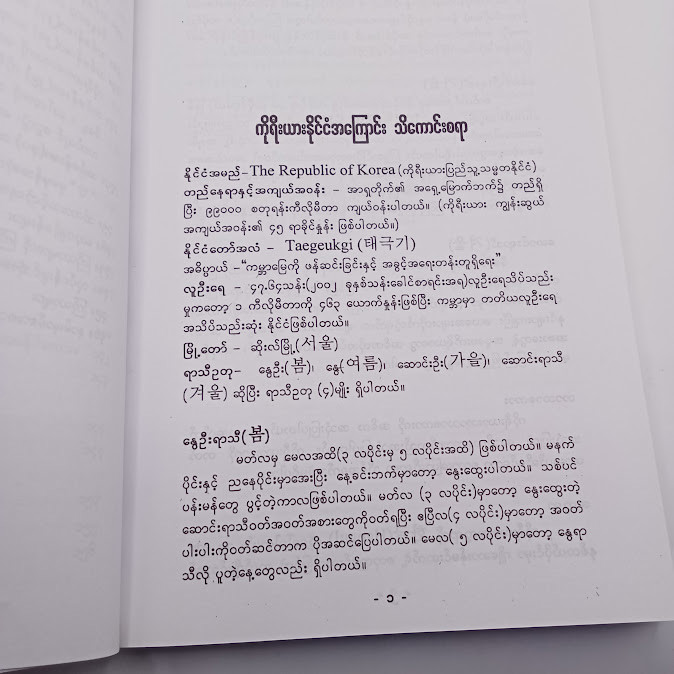 ကိုရီးယားနိုင်ငံအကြောင်း သိကောင်းစရာ
နိုင်ငံအမည်-The Republic of Korea (ကိုရီးယားပြည်သူ့သမ္မတနိုင်ငံ)
တည်နေရာနှင့်အကျယ်အဝန်း – အာရှတိုက်၏ အရှေ့မြောက်ဘက်၌ တည်ရှိ
ပြီး ၉၉၀၀၀ စတုရန်းကီလိုမီတာ ကျယ်ဝန်းပါတယ်။ (ကိုရီးယား ကျွန်းဆွယ်
အကျယ်အဝန်း၏ ၄၅ ရာခိုင်နှုန်း ဖြစ်ပါတယ်။)
နိုင်ငံတော်အလံ – Taegeukgi (태극기)
အဓိပ္ပာယ် –“ကမ္ဘာမြေကို ဖန်ဆင်းခြင်းနှင့် အခွင့်အရေးတန်းတူရှိရေး”
လူဦးရေ – ၄၇.၆၄သန်း(၂၀၀၂ ခုနှစ်သန်းခေါင်စာရင်းအရ)လူဦးရေသိပ်သည်း
မှုကတော့ ၁ ကီလိုမီတာကို ၄၆၃ ယောက်နှုန်းဖြစ်ပြီး ကမ္ဘာမှာ တတိယလူဦးရေ
အသိပ်သည်းဆုံး နိုင်ငံဖြစ်ပါတယ်။
မြို့တော် – ဆိုးလ်မြို့(서울)
ရာသီဥတု– နွေဦး(봄)၊ နွေ(여름)၊ ဆောင်းဦး(가을)၊ ဆောင်းရာသီ
(겨울) ဆိုပြီး ရာသီဥတု (၄)မျိုး ရှိပါတယ်။
နွေဦးရာသီ(봄)
မတ်လမှ မေလအထိ(၃ လပိုင်းမှ ၅ လပိုင်းအထိ) ဖြစ်ပါတယ်။ မနက်
ပိုင်းနှင့် ညနေပိုင်းမှာအေးပြီး နေ့ခင်းဘက်မှာတော့ နွေးထွေးပါတယ်။ သစ်ပင်
ပန်းမန်တွေ ပွင့်တဲ့ကာလဖြစ်ပါတယ်။ မတ်လ (၃ လပိုင်း)မှာတော့ နွေးထွေးတဲ့
ဆောင်းရာသီဝတ်အဝတ်အစားတွေကိုဝတ်ရပြီး ဧပြီလ(၄ လပိုင်း)မှာတော့ အဝတ်
ပါးပါးကိုဝတ်ဆင်တာက ပိုအဆင်ပြေပါတယ်။ မေလ( ၅ လပိုင်း)မှာတော့ နွေရာ
သီလို ပူတဲ့နေ့တွေလည်း ရှိပါတယ်။
- ၁ -